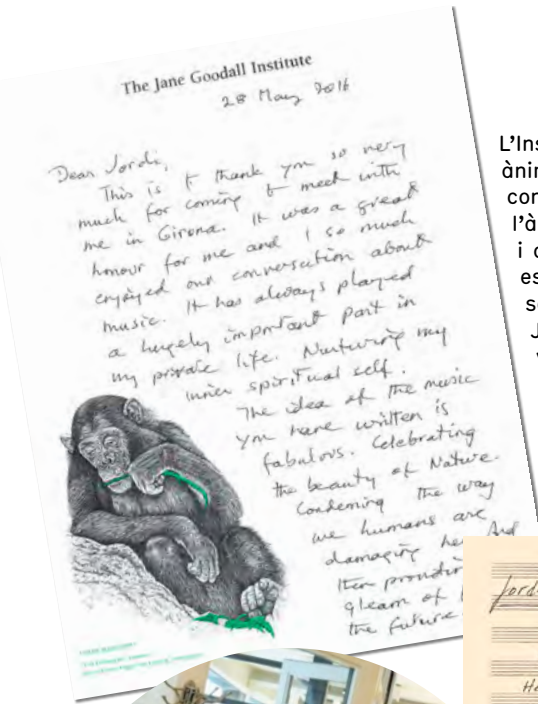 The Jane Goodall Institute
28 May 2016
Dear Jordi,
This is to thank you so very
much for coming to meet with
me in Girona. It was a great
honour for me and I so much
enjoyed our conversation about
music. It has always played
a hugely important part in
my private life. Nurturing my
inner spiritual self.
The idea of the music
you have written is
fabulous. Celebrating
the beauty of Nature.
Condemning the way
we humans are
damaging her. And
then
gleam of
the future
L'Ins
àni
con
l'à
i
es
s
J
Jord